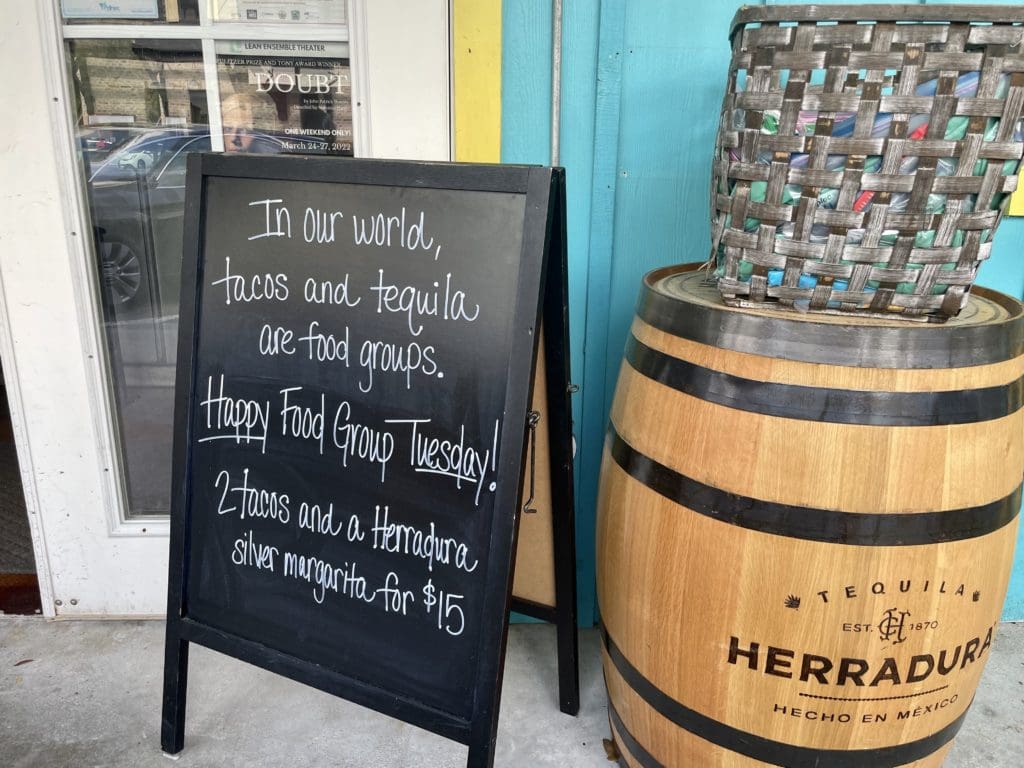 LEAN ENSEMBLE THEATER
PULITZER PRIZE AND TONY AWARD WINNER
DOUBT
by John Patrick Shanley
ONE WEEKEND ONLY!
March 24-27, 2022
In our world,
tacos and tequila
are food groups.
Happy Food Group Tuesday!
2 tacos and a Herradura
silver margarita for $15
TEQUILA
EST. 1870
HERRADURA
HECHO EN MÉXICO